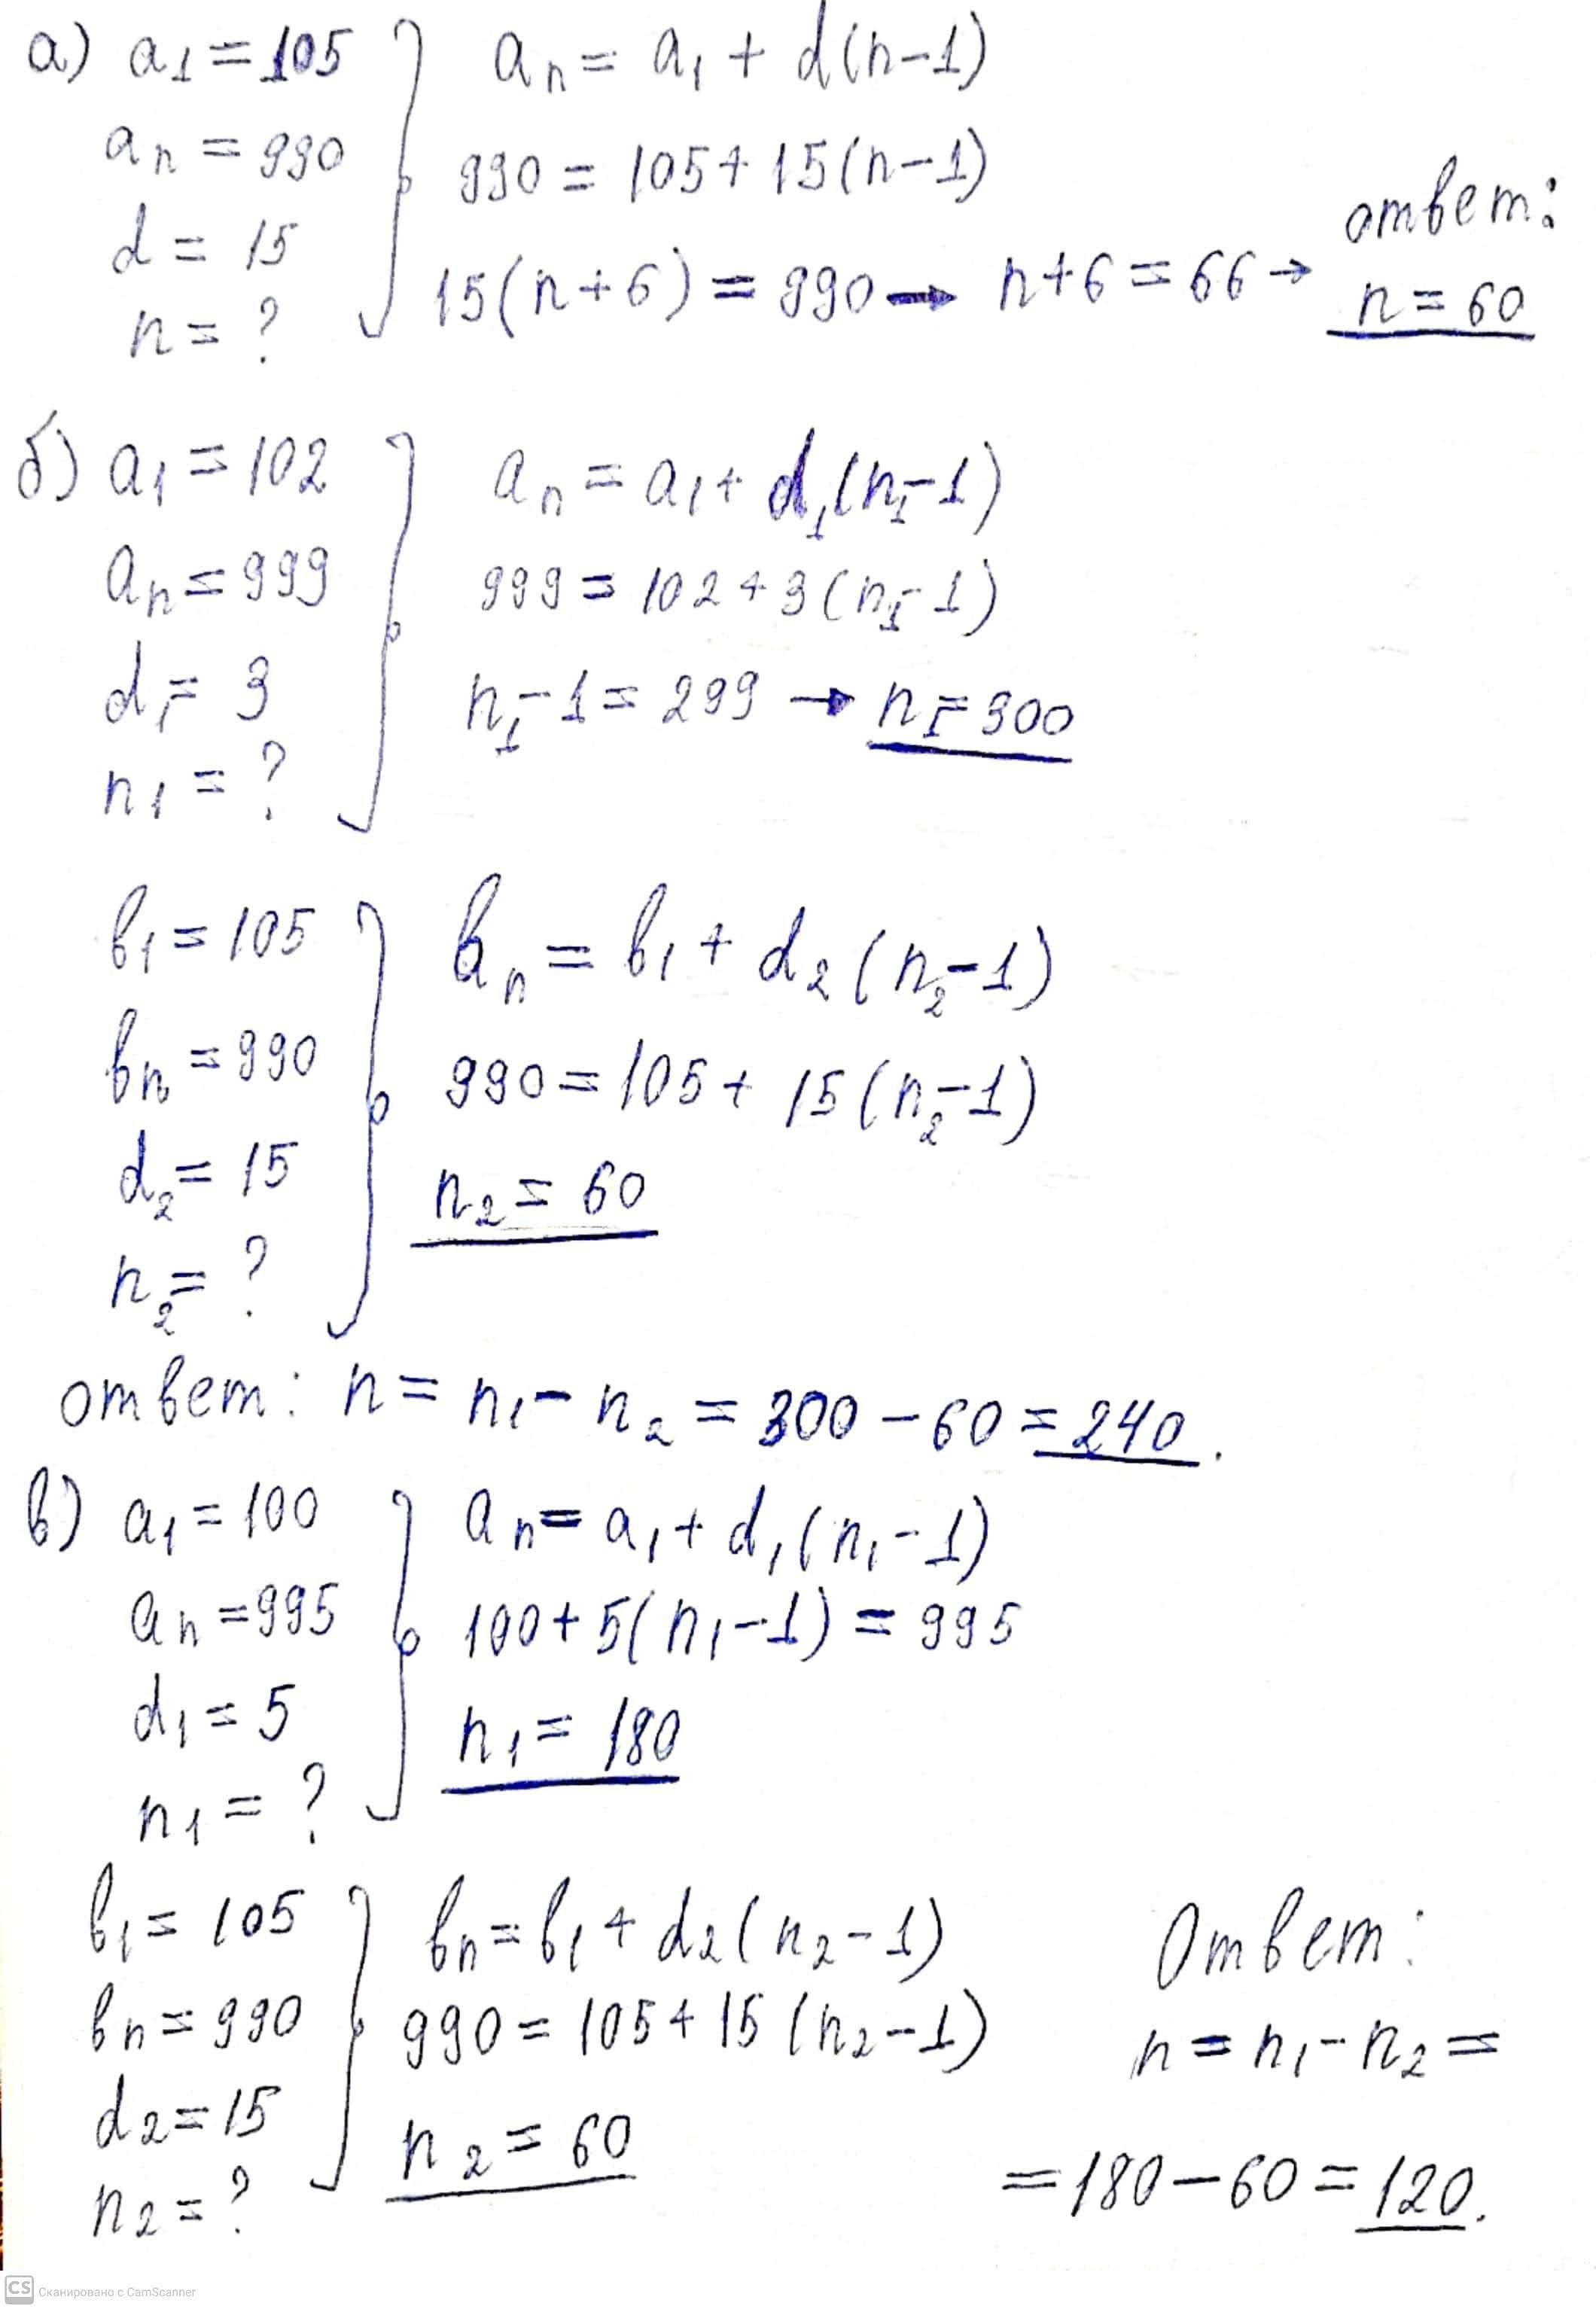 а) a₁ = 105
aₙ = 990
d = 15
n = ?
aₙ = a₁ + d(n-1)
990 = 105 + 15(n-1)
15(n+6) = 990 → n+6 = 66 →
ответ:
n = 60
б) a₁ = 102
aₙ = 999
d₁ = 3
n₁ = ?
aₙ = a₁ + d₁(n₁-1)
999 = 102 + 3(n₁-1)
n₁-1 = 299 → n₁ = 300
b₁ = 105
bₙ = 990
d₂ = 15
n₂ = ?
bₙ = b₁ + d₂(n₂-1)
990 = 105 + 15(n₂-1)
n₂ = 60
ответ: n = n₁ - n₂ = 300 - 60 = 240.
в) a₁ = 100
aₙ = 995
d₁ = 5
n₁ = ?
aₙ = a₁ + d₁(n₁-1)
100 + 5(n₁-1) = 995
n₁ = 180
b₁ = 105
bₙ = 990
d₂ = 15
n₂ = ?
bₙ = b₁ + d₂(n₂-1)
990 = 105 + 15(n₂-1)
n₂ = 60
Ответ:
n = n₁ - n₂ =
= 180 - 60 = 120.
CS Сканировано с CamScanner